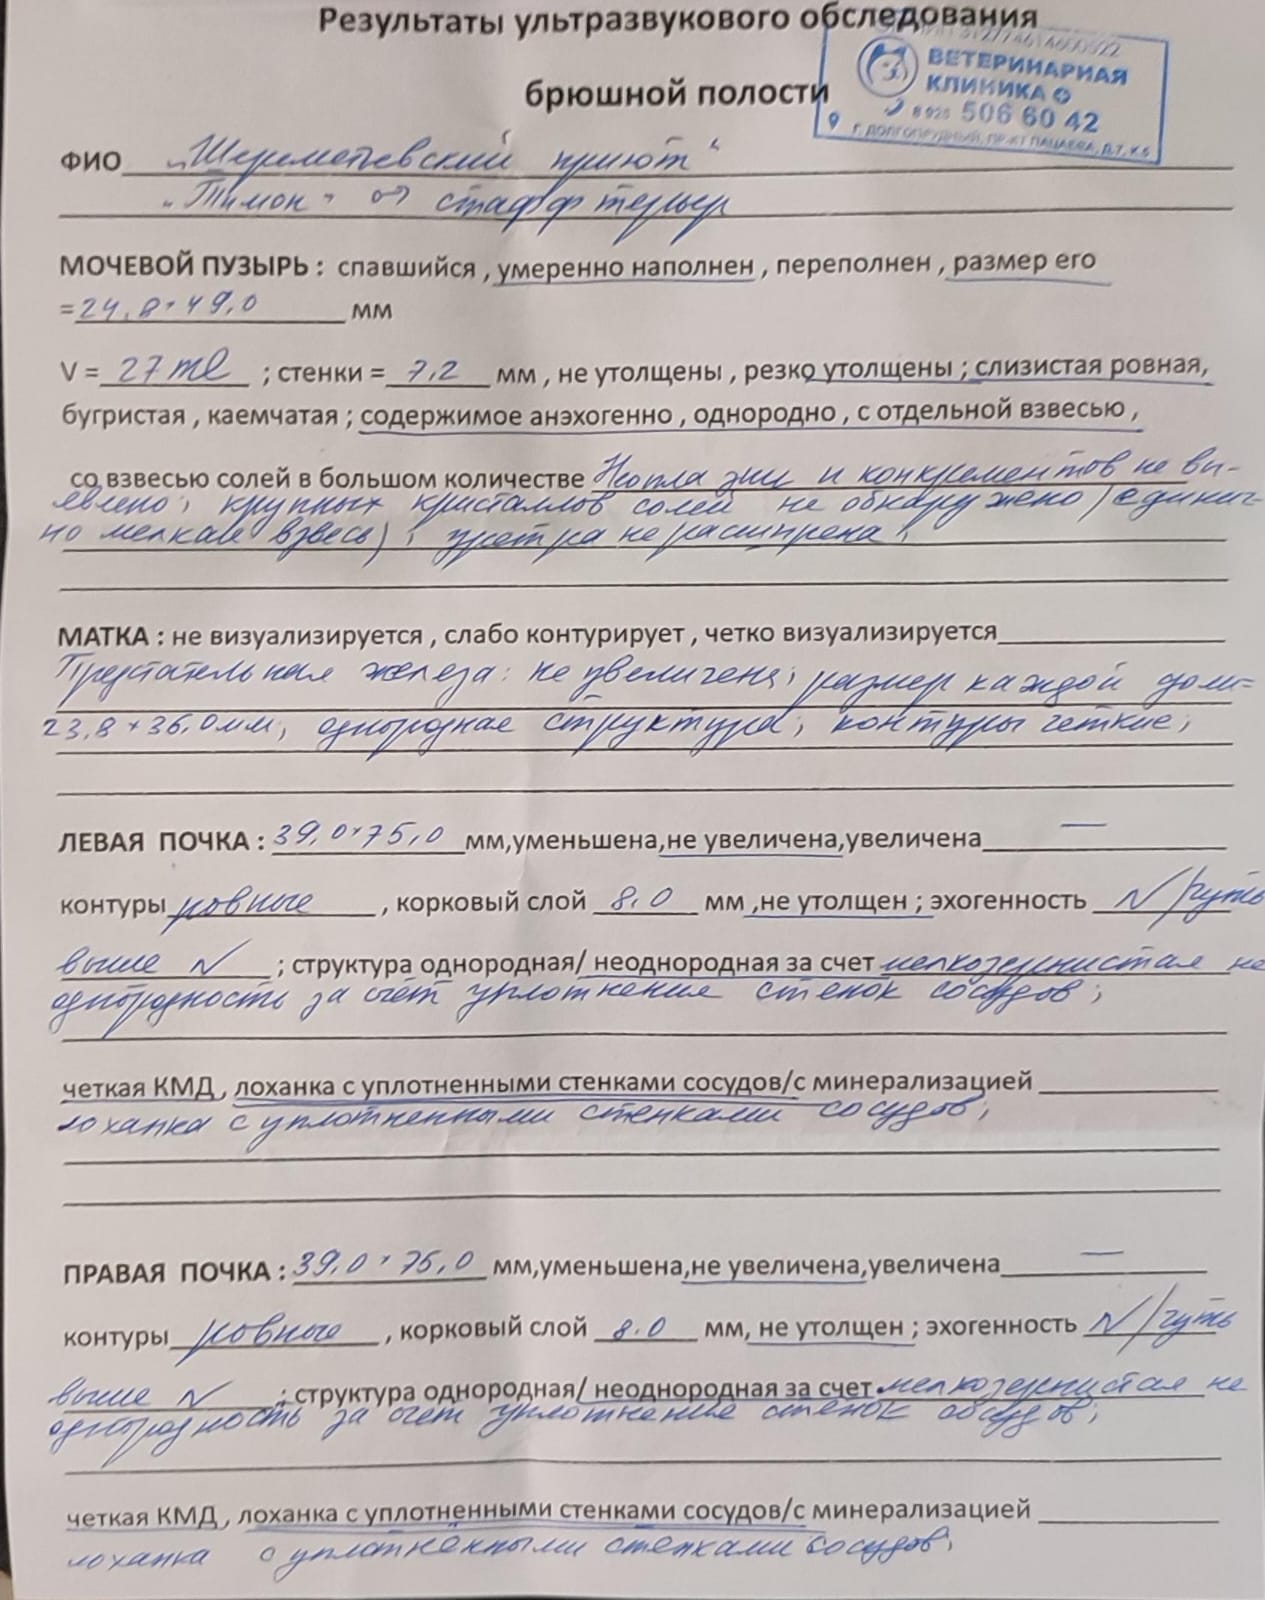 Результаты ультразвукового обследования
брюшной полости
ВЕТЕРИНАРНАЯ
КЛИНИКА
8 925 506 60 42
Г. ДОЛГОПРУДНЫЙ, ПР-КТ ПАЦАЕВА, Д.7, К.6
ФИО „Шереметьевский приют“
„Тимон“ стафф терьер
МОЧЕВОЙ ПУЗЫРЬ : спавшийся , умеренно наполнен , переполнен , размер его
= 24,8 × 49,0 мм
V = 27 ml ; стенки = 7,2 мм , не утолщены , резко утолщены ; слизистая ровная,
бугристая , каемчатая ; содержимое анэхогенно , однородно , с отдельной взвесью ,
со взвесью солей в большом количестве Неоплазии и конкрементов не вы-
явлено; крупных кристаллов солей не обнаружено (единич-
но мелкая взвесь); уретра не расширена;
МАТКА : не визуализируется , слабо контурирует , четко визуализируется
Предстательная железа: не увеличена; размер каждой доли=
23,8 × 36,0 мм; однородная структура; контуры четкие;
ЛЕВАЯ ПОЧКА : 39,0 × 75,0 мм,уменьшена,не увеличена,увеличена —
контуры ровные , корковый слой 8,0 мм ,не утолщен ; эхогенность N/чуть
выше N ; структура однородная/ неоднородная за счет мелкозернистая не
однородность за счёт уплотнения стенок сосудов;
четкая КМД , лоханка с уплотненными стенками сосудов/с минерализацией
лоханка с уплотненными стенками сосудов;
ПРАВАЯ ПОЧКА : 39,0 × 75,0 мм,уменьшена,не увеличена,увеличена —
контуры ровные , корковый слой 8.0 мм, не утолщен ; эхогенность N/чуть
выше N ; структура однородная/ неоднородная за счет мелкозернистая не
однородность за счет уплотнения стенок сосудов;
четкая КМД , лоханка с уплотненными стенками сосудов/с минерализацией
лоханка с уплотнёнными стенками сосудов;